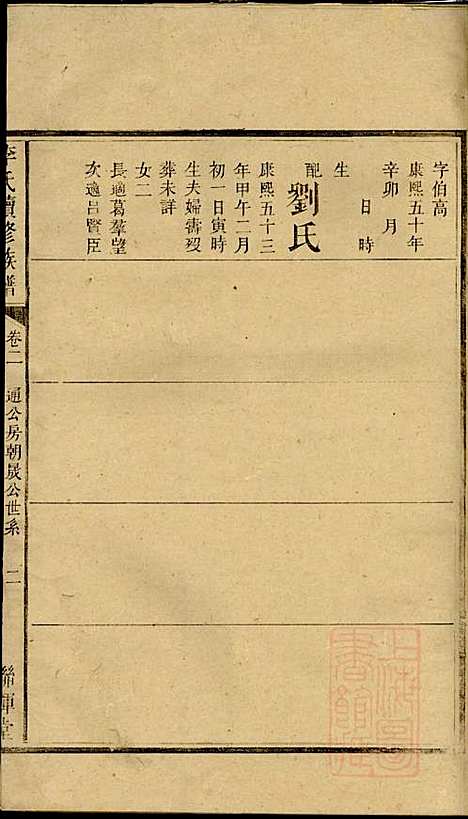 字伯高
康熙五十年
辛卯 月
日 時
生
配劉氏
康熙五十三
年甲午二月
初一日寅時
生夫婦壽歿
葬未詳
女二
長適葛羣望
次適呂賢臣
李氏續修族譜
卷二 通公房朝晟公世系 二
聯輝堂